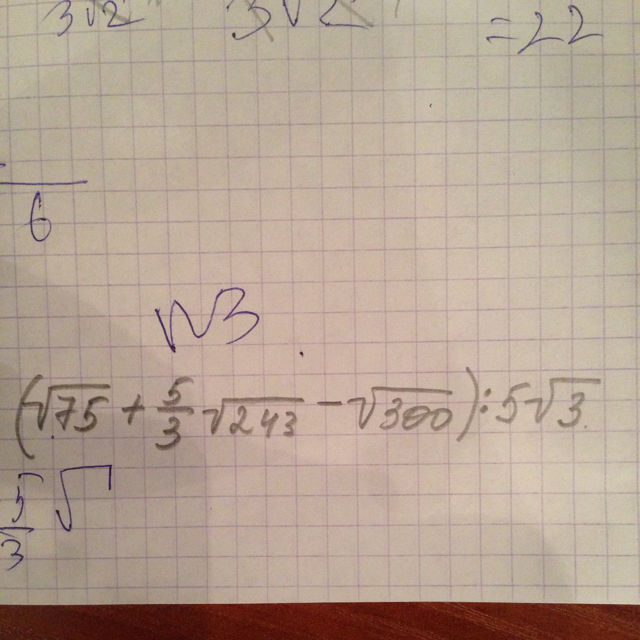 3√2 3√2 = 22
6
N3
(√75 + 5/3 √243 − √300) : 5√3
5/3 √